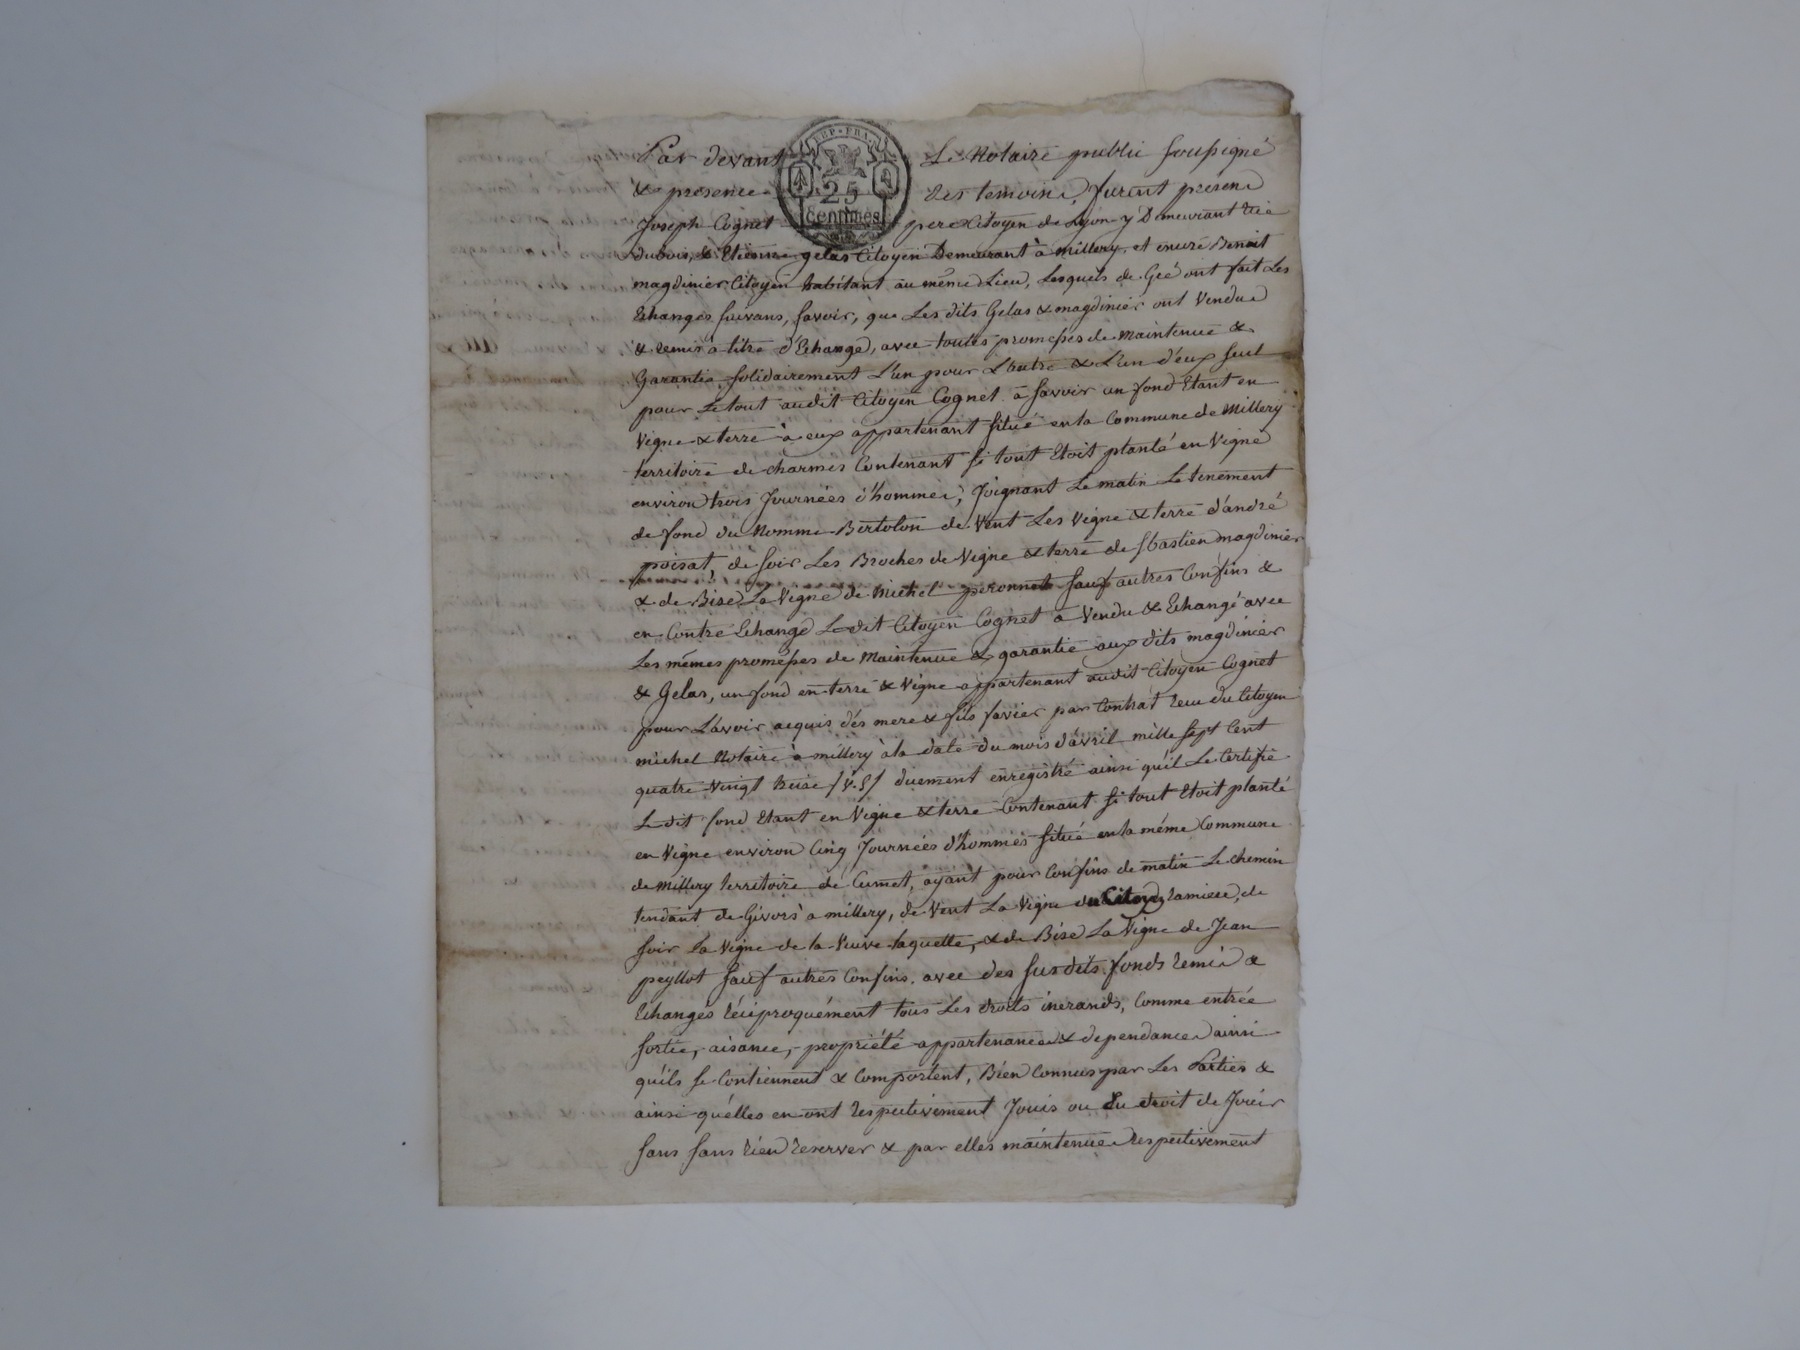 Par devant Le Notaire public soussigné
REP. FRA.
25
centimes
& presence des temoins, furent presens
Joseph Cognet pere Citoyen de Lyon y Demeurant rue
dubois, & Etienne gelas Citoyen Demeurant à millery, et encore Benoit
magdinier Citoyen habitant au même Lieu, Lesquels de Gré ont fait Les
Echanges suivans, savoir, que Les dits Gelas & magdinier ont Vendu
& remis à titre d'Echange, avec toutes promesses de Maintenue &
Garantie solidairement L'un pour L'autre & L'un d'eux seul
pour Le tout audit Citoyen Cognet à savoir un fond Etant en
Vigne & terre à eux appartenant situé en la Commune de Millery
territoire de charmes Contenant si tout Etoit planté en Vigne
environ trois Journées d'hommes, Joignant Le matin Le tenement
de fond du Nommé Bertolon de Vent Les Vigne & terre d'andré
poisat, de soir Les Broches de Vigne & terre de sbastien magdinier
& de Bise La Vigne de Michel peronnet sauf autres Confins &
en Contre Echange Ledit Citoyen Cognet a Vendu & Echangé avec
Les mêmes promesses de Maintenue & garantie aux dits magdinier
& Gelas, un fond en terre & Vigne appartenant audit Citoyen Cognet
pour L'avoir acquis dés mere & fils favier par Contrat reçu du Citoyen
michel Notaire à millery à la date du mois d'avril mille sept Cent
quatre Vingt treise /v.s/ duement enregistré ainsi qu'il Le Certifie
Ledit fond Etant en Vigne & terre Contenant si tout Etoit planté
en Vigne environ Cinq Journées d'hommes situé en la même Commune
de Millery territoire de Cumet, ayant pour Confins de matin Le chemin
tendant de Givors a millery, de Vent La Vigne du Citoyen ramiere, de
soir La Vigne de la Veuve laquette, & de Bise La Vigne de Jean
peyllot sauf autres Confins. avec des susdits fonds remis &
Echangés réciproquément tous Les droits inerands, Comme entrée
sortie, aisance, propriété appartenances & dependances ainsi
qu'ils se Contiennent & Comportent, Bien Connus par Les Parties &
ainsi qu'elles en ont respectivement Jouis ou Eu droit de Jouir
sans sans rien reserver & par elles maintenues respectivement